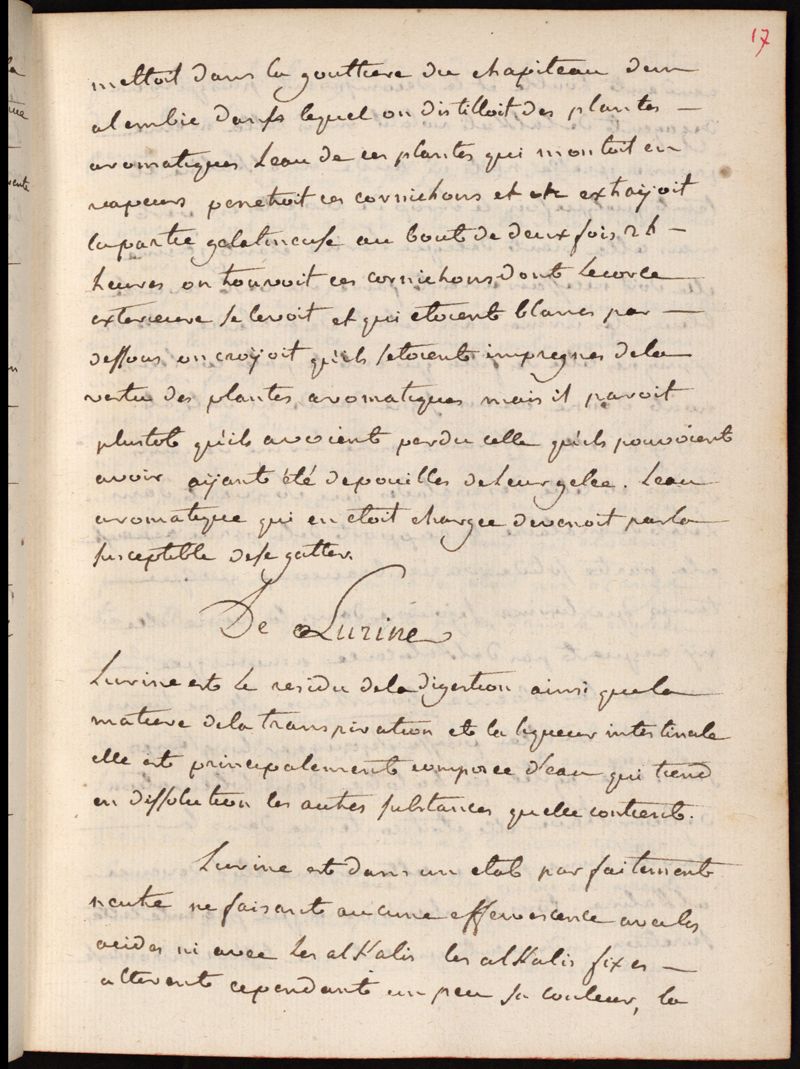 17
mettoit dans la gouttiere du chapiteau dun
alembic dans lequel on distilloit des plantes —
aromatiques Leau de ces plantes qui montoit en
vapeurs penetroit ces cornichons et extrayoit
la partie gelatineuse au bout de deux fois 24 —
heures on trouvoit ces cornichons dont Lecorce
exterieure se levoit et qui etoient blancs par —
dessous on croyoit qu'ils setoient impregnes de la
vertu des plantes aromatiques mais il paroit
plustot qu'ils avoient perdu celle qu'ils pouvoient
avoir ayant été depouilles de Leur gelee. Leau
aromatique qui en etoit chargee devenoit par la
susceptible de se gatter.
De Lurine
Lurine est Le residu de la digestion ainsi que la
matiere de la transpiration et la liqueur intestinale
elle est principalement composee d'eau qui tiend
en dissolution les autres substances quelle contient.
Lurine est dans un etat parfaitement
neutre ne faisant aucune effervescence avec les
acides ni avec Les alkalis les alkalis fixes —
alterent cependant un peu sa couleur, la